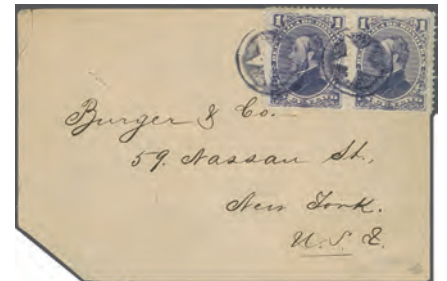 1 1 1 1
Burger & Co.
59. Nassau St.,
New York.
U. S.